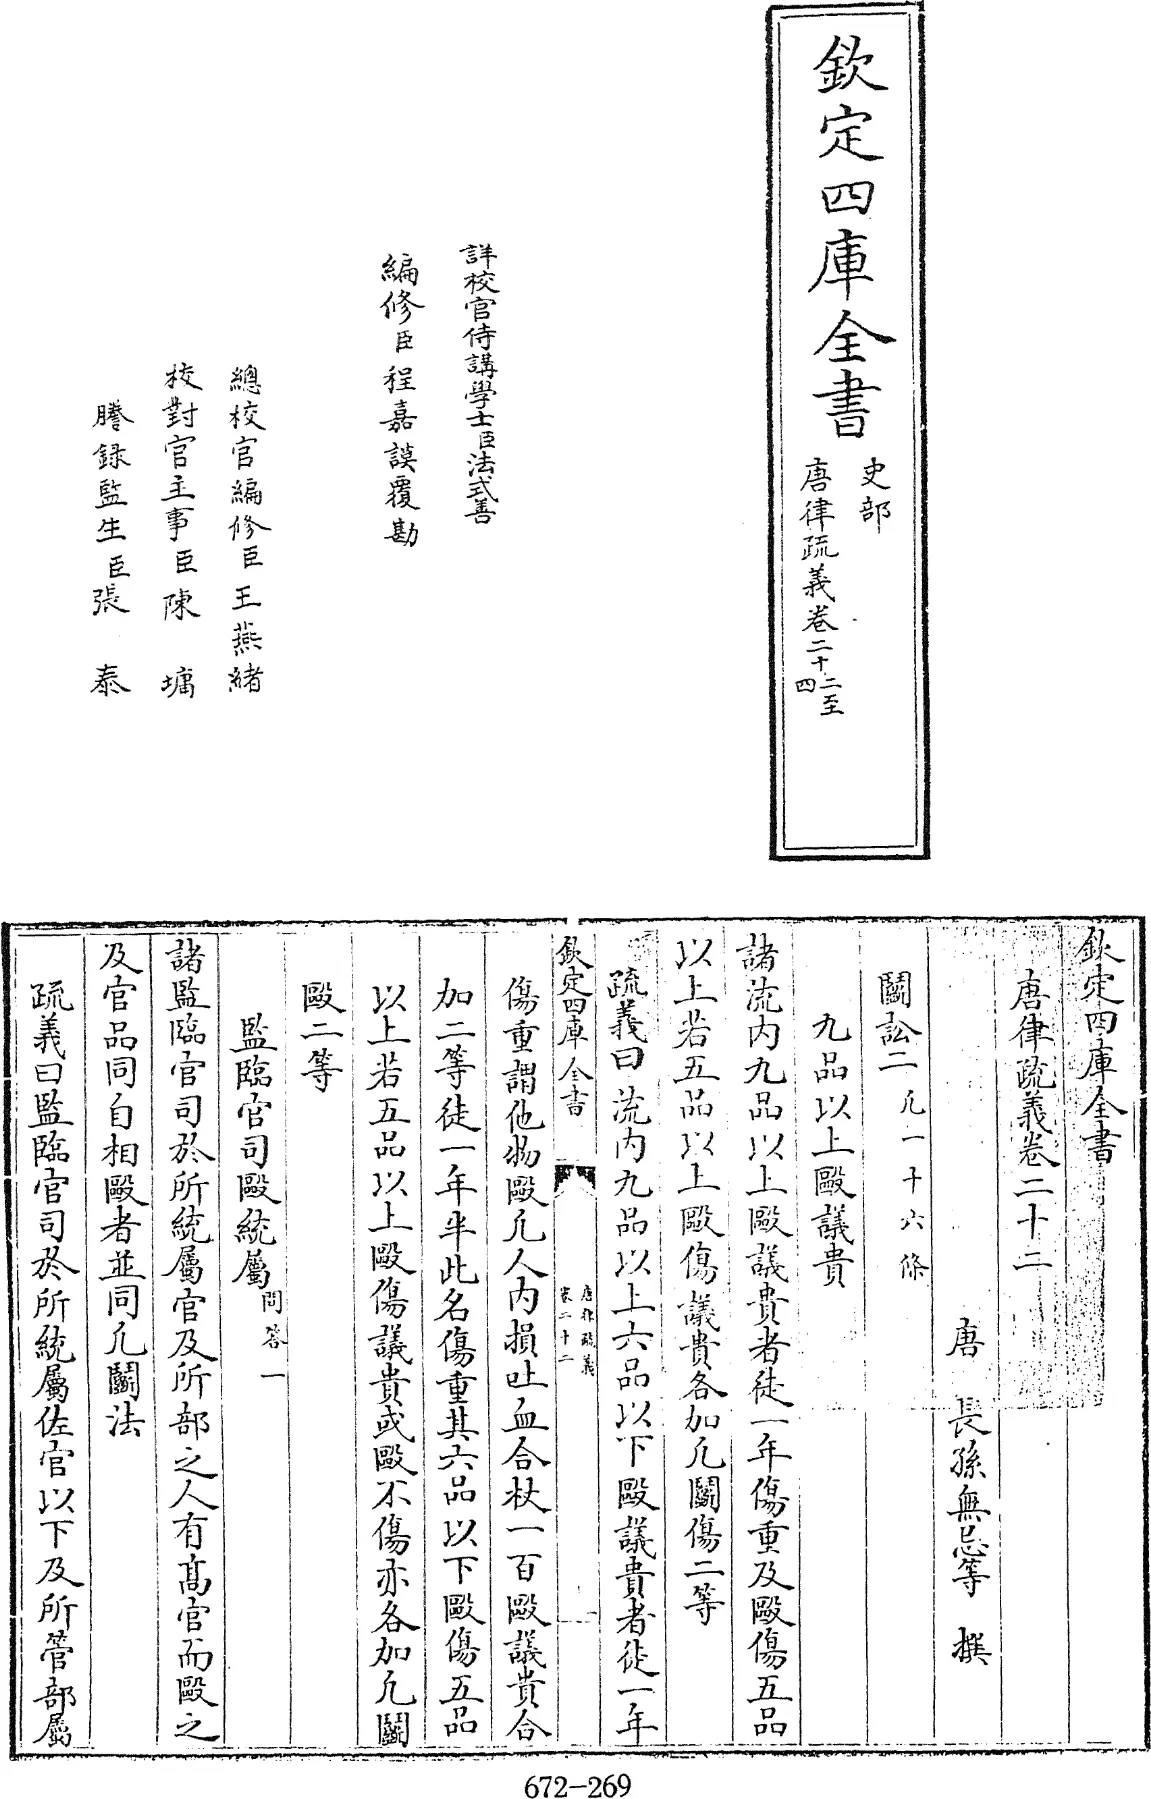 欽定四庫全書
史部
唐律疏義卷二十二至
四
詳校官侍講學士臣法式善
編修臣程嘉謨覆勘
總校官編修臣王燕緒
校對官主事臣陳墉
謄録監生臣張泰
欽定四庫全書
唐律疏義卷二十二
唐 長孫無忌等 撰
鬭訟二凡一十六條
九品以上毆議貴
諸流内九品以上毆議貴者徒一年傷重及毆傷五品
以上若五品以上毆傷議貴各加凡鬭傷二等
疏義曰流内九品以上六品以下毆議貴者徒一年
欽定四庫全書
唐律疏義
卷二十二
一
傷重謂他物毆凡人内損吐血合杖一百毆議貴合
加二等徒一年半此名傷重其六品以下毆傷五品
以上若五品以上毆傷議貴或毆不傷亦各加凡鬭
毆二等
監臨官司毆統屬問答一
諸監臨官司於所統屬官及所部之人有髙官而毆之
及官品同自相毆者並同凡鬭法
疏義曰監臨官司於所統屬佐官以下及所管部屬
672-269